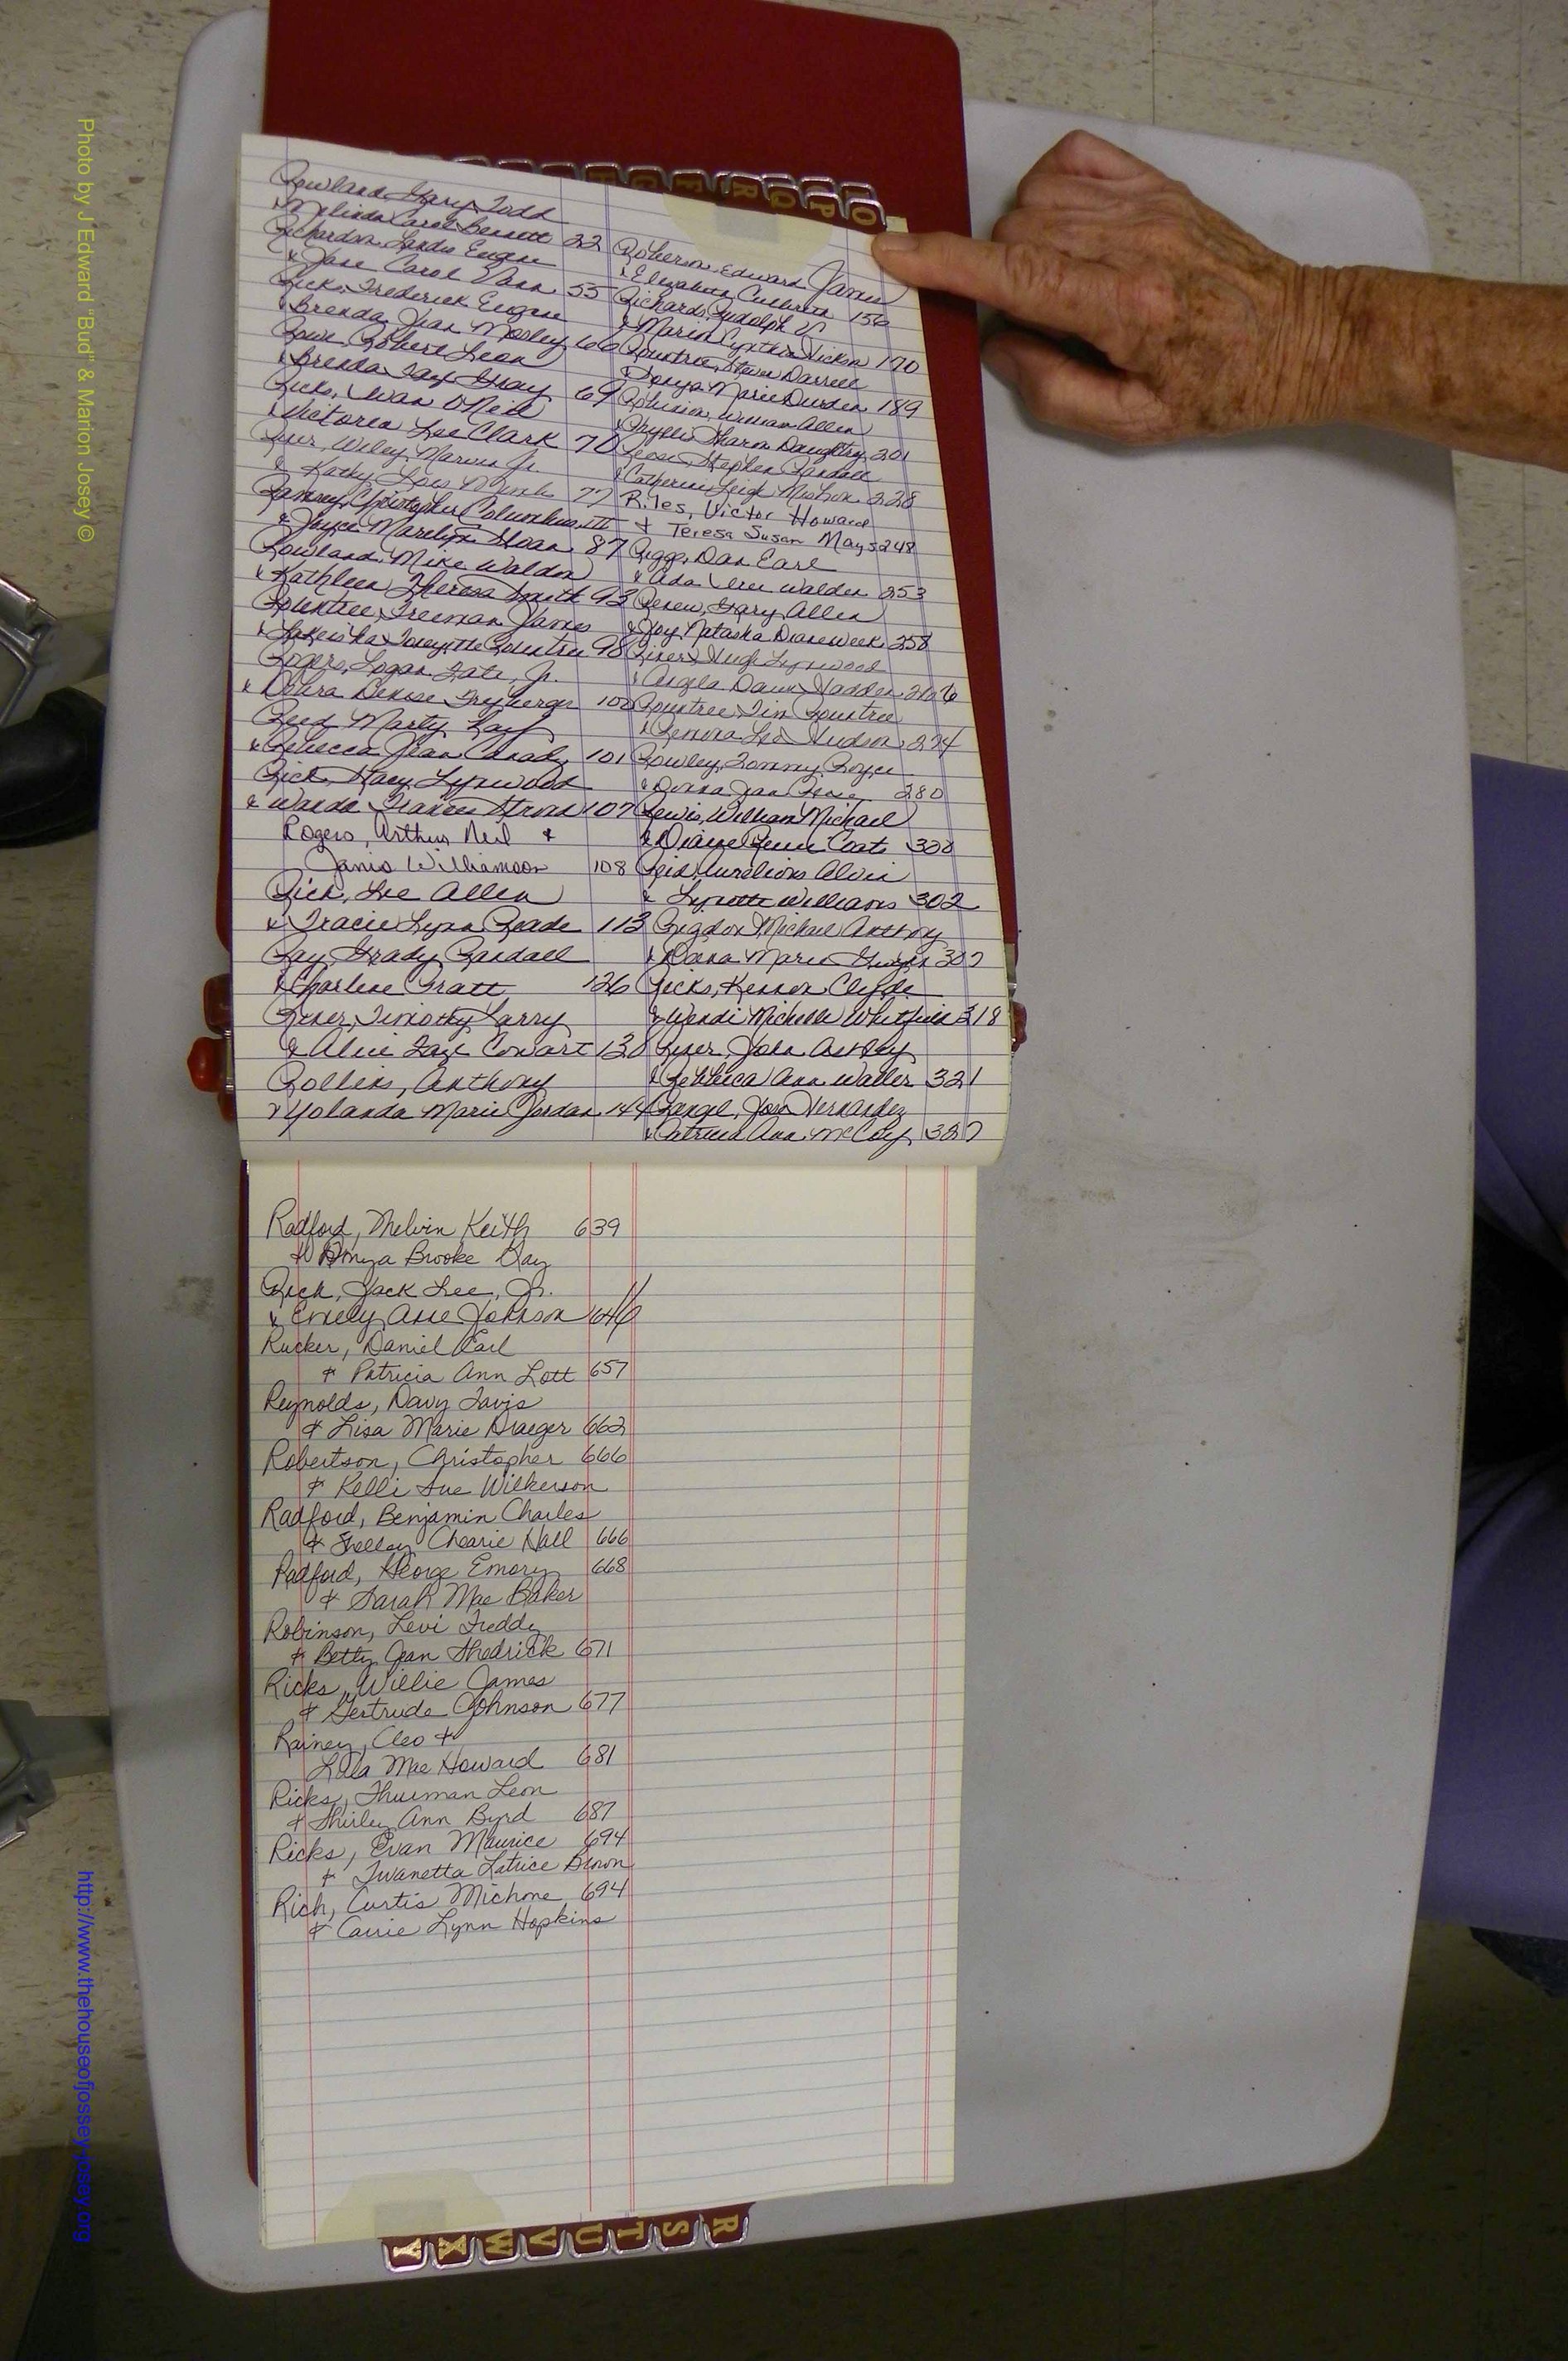 Rowland, Gary Todd
& Melinda Carol Bennett 22
Richardson, Landis Eugene
& Jane Carol Vann 55
Ricks, Frederick Eugene
& Brenda Jean Mosley 66
Rowe, Robert Leon
& Brenda Kay Gray 69
Ricks, Ivan O'Neil
& Victoria Lee Clark 70
Riner, Wiley Marvin Jr.
& Kathy Lois 77
Ramsey, Christopher Columbus III
& Joyce Marilyn Sloan 87
Rowland, Mike Waldon
& Kathleen Theresa Smith 93
Rountree, Freeman James
& Lakeisha Rountree 98
Rogers, Logan Tate, Jr.
& Debra Denise Fryberger 100
Reed, Marty Ray
& Rebecca Jean Canady 101
Rich, Stacy Lynwood
& Wanda Frances Stroud 107
Rogers, Arthur Neil &
Janis Williamson 108
Rich, Lee Allen
& Tracie Lynn Reade 113
Ray, Grady Randall
& Charlene Pratt 126
Riner, Timothy Larry
& Alice Faye Cowart 130
Rollins, Anthony
& Yolanda Marie Jordan 144
Roberson, Edward James
& Elizabeth Culbreth 156
Richards, Rudolph V
& Maria Cynthia 170
Rountree, Steven Darrell
& Tonya Marie Durden 189
Robinson, William Allen
Phyllis Sharon Daughtry 201
Reese, Stephen Randall
& Catherine Leigh 228
Riles, Victor Howard
& Teresa Susan Mays 248
Riggs, Dan Earl
& Ada Walden 253
Renew, Gary Allen
& Joy Natasha Diane Weeks 258
Riner, Hugh Lynwood
& Angela Dawn Hadden 266
Rountree, Tim Rountree
& Lenora Lee Hudson 274
Rowley, Tommy Royce
& Donna Jan 280
Lewis, William Michael
& Diane Renee Coats 300
Reid, Aurelious Alvin
& Lynette Williams 302
Rigdon, Michael Anthony
& Dana Marie 307
Ricks, Kennon Clyde
& Wendi Michelle Whitfield 318
Riner, John Ashley
& Rebecca Ann Waller 321
Rangel, Jose Hernandez
& Patricia Ann McCoy 327
Radford, Melvin Keith 639
& Brooke Ray
Rich, Jack Lee, Jr.
& Emily Ane Johnson 646
Rucker, Daniel Earl
& Patricia Ann Lott 657
Reynolds, Davy Tavis
& Lisa Marie Draeger 662
Robertson, Christopher 666
& Kelli Sue Wilkerson
Radford, Benjamin Charles
& Shelley Chearie Hall 666
Radford, George Emory 668
& Sarah Mae Baker
Robinson, Levi Freddy
& Betty Jean Shedrick 671
Ricks, Willie James
& Gertrude Johnson 677
Rainey, Cleo &
Lula Mae Howard 681
Ricks, Thurman Leon
& Shirley Ann Byrd 687
Ricks, Evan Maurice 694
& Twanetta Latrice Brown
Rich, Curtis Michone 694
& Carrie Lynn Hopkins
R
S
T
U
V
W
X
Y
O
P
Q
R
F
G
H
Photo by J Edward "Bud" & Marion Josey ©
http://www.thehouseofjossey-josey.org